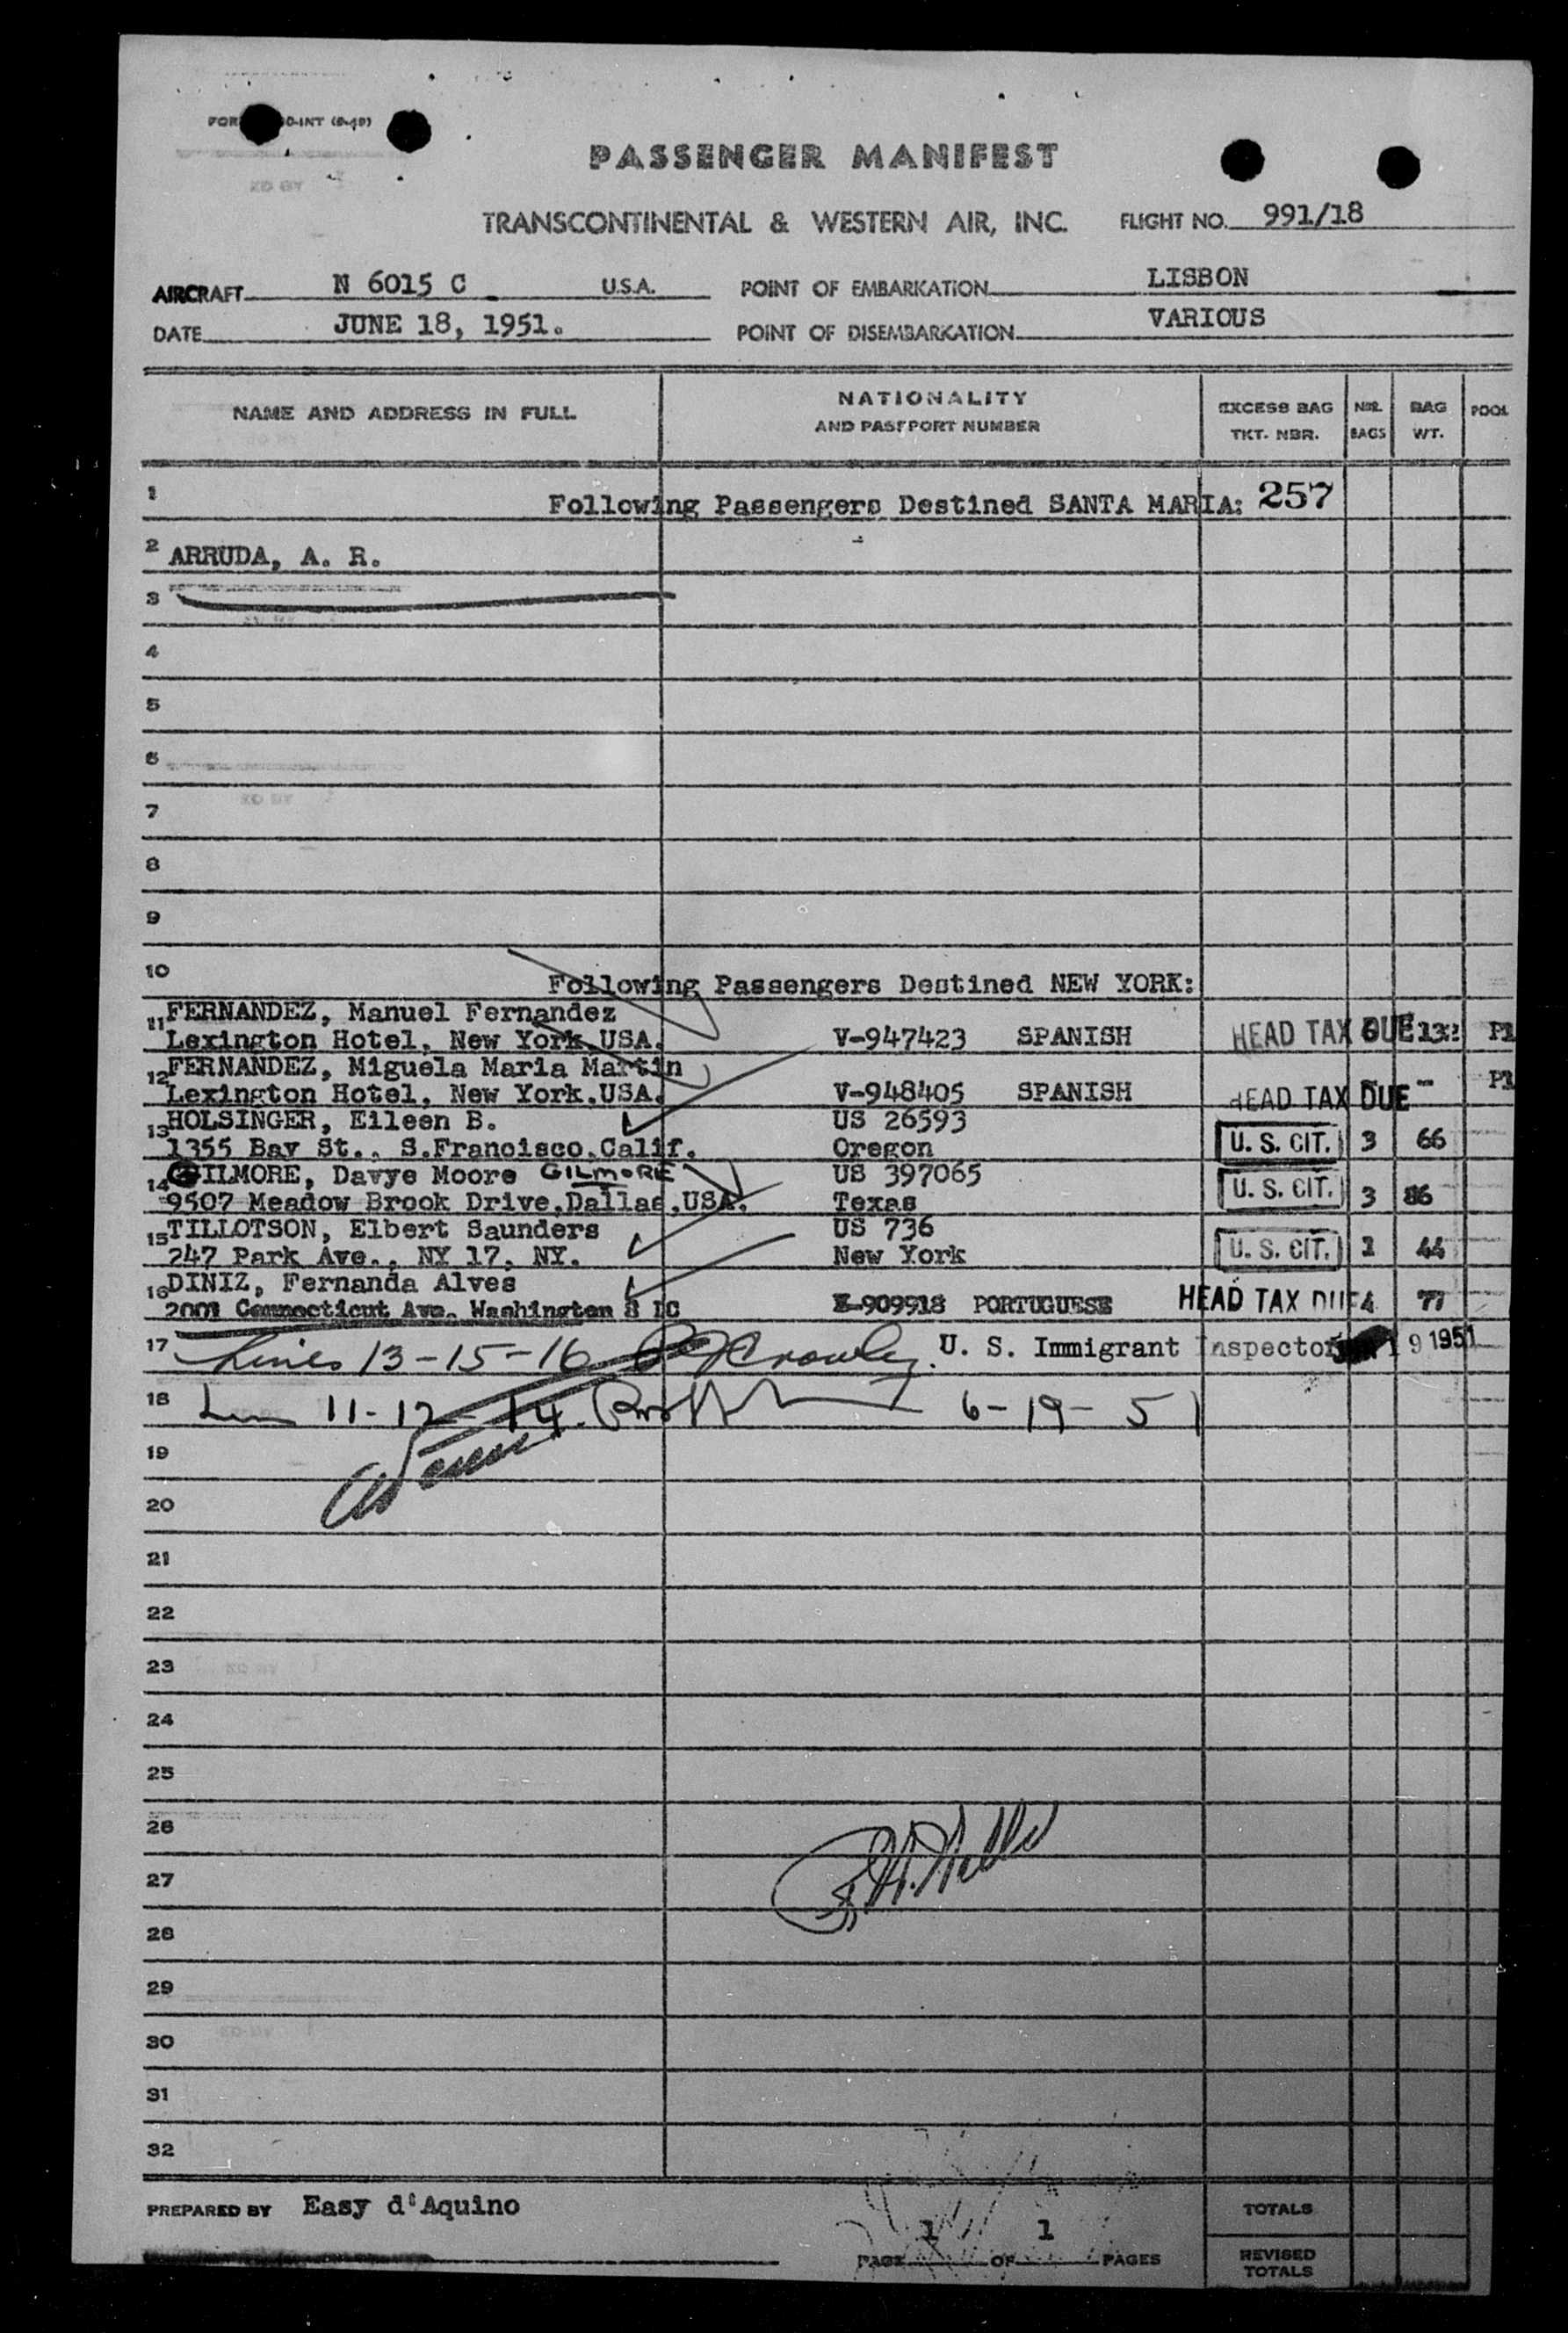 PASSENGER MANIFEST
TRANSCONTINENTAL & WESTERN AIR, INC. FLIGHT NO. 991/18
AIRCRAFT N 6015 C U.S.A. POINT OF EMBARKATION LISBON
DATE JUNE 18, 1951. POINT OF DISEMBARKATION VARIOUS
NAME AND ADDRESS IN FULL NATIONALITY AND PASSPORT NUMBER EXCESS BAG TKT. NBR. NBR. BAGS BAG WT. POOL
1 Following Passengers Destined SANTA MARIA: 257
2 ARRUDA, A. R.
3
4
5
6
7
8
9
10 Following Passengers Destined NEW YORK:
11 FERNANDEZ, Manuel Fernandez
Lexington Hotel, New York.USA. V-947423 SPANISH HEAD TAX DUE P1
12 FERNANDEZ, Miguela Maria Martin
Lexington Hotel, New York.USA. V-948405 SPANISH HEAD TAX DUE - P1
13 HOLSINGER, Eileen B. US 26593
1355 Bay St., S.Francisco.Calif. Oregon U. S. CIT. 3 66
14 GILMORE, Davye Moore GILMORE US 397065
9507 Meadow Brook Drive,Dallas,USA. Texas U. S. CIT. 3 86
15 TILLOTSON, Elbert Saunders US 736
247 Park Ave., NY 17, NY. New York U. S. CIT. 1 44
16 DINIZ, Fernanda Alves
2001 Connecticut Ave. Washington 8 DC 909918 PORTUGUESE HEAD TAX DUE 4 77
17 Lines 13-15-16 Crowley. U. S. Immigrant Inspector 19 1951
18 11-12-14. 6-19-51
19
20
21
22
23
24
25
26
27
28
29
30
31
32
PREPARED BY Easy d'Aquino TOTALS
PAGE 1 OF 1 PAGES REVISED TOTALS